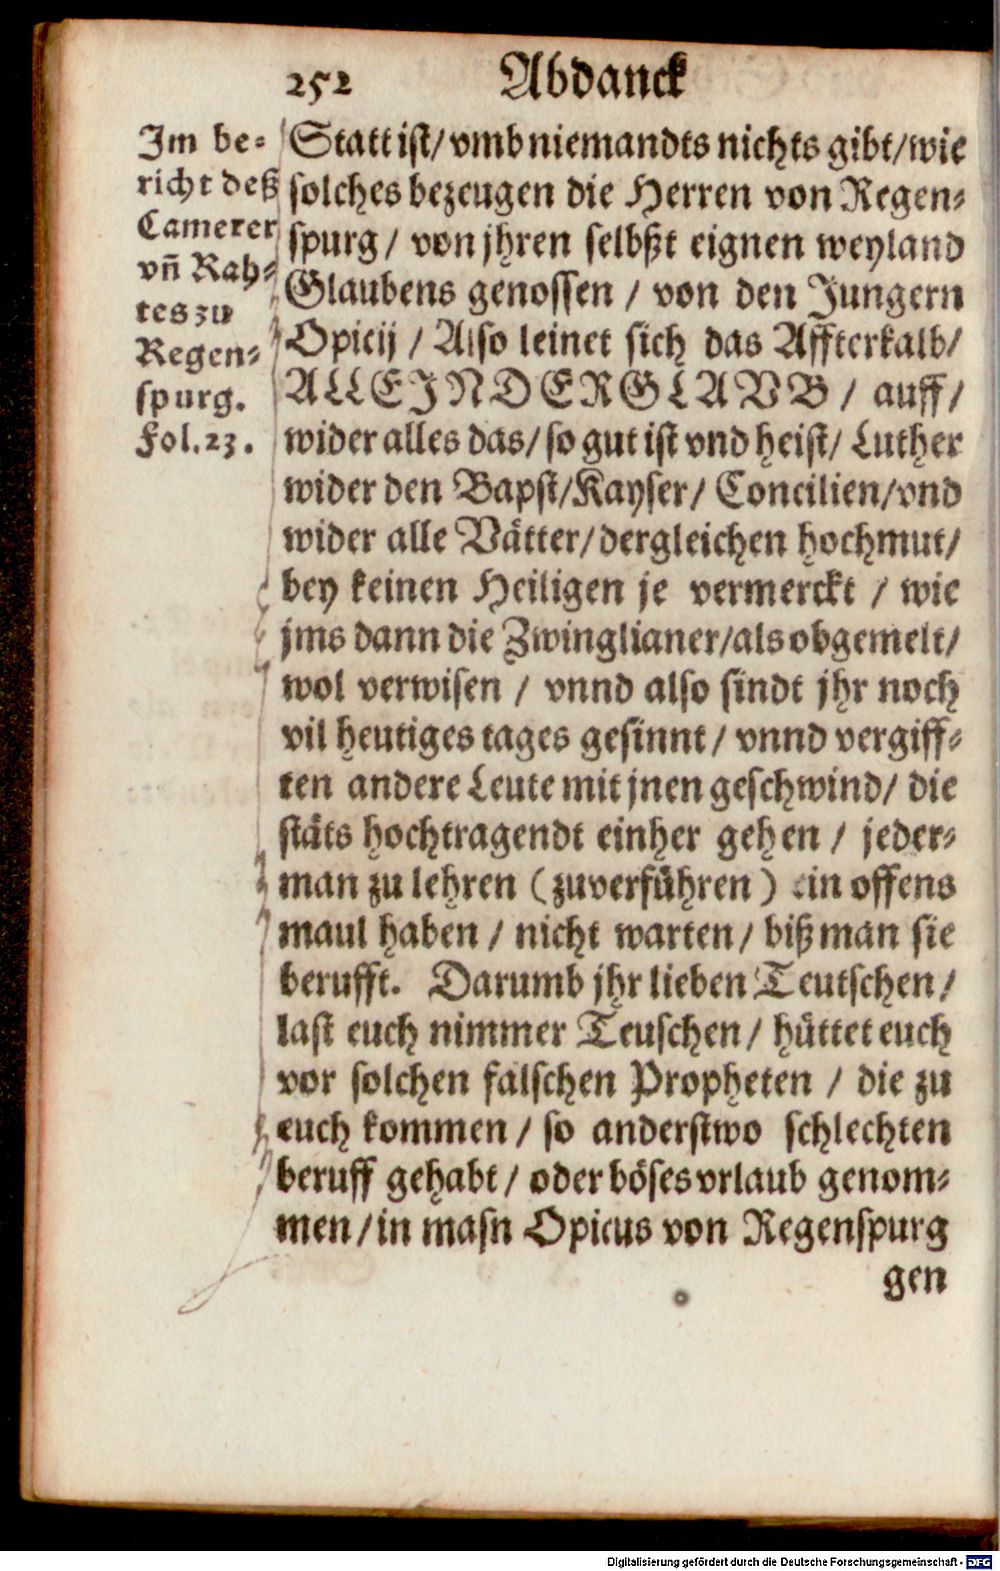 252 Abdanck
Im be-
richt deß
Camerer
vñ Rah-
tes zu
Regen-
spurg.
Fol. 23.
Statt ist/ vmb niemandts nichts gibt/ wie
solches bezeugen die Herren von Regen-
spurg/ von jhren selbßt eignen weyland
Glaubens genossen / von den Jungern
Opicij / Also leinet sich das Affterkalb/
ALLEIN DER GLAVB / auff/
wider alles das/ so gut ist vnd heist/ Luther
wider den Bapst/ Kayser/ Concilien/ vnd
wider alle Vätter/ dergleichen hochmut/
bey keinen Heiligen je vermerckt / wie
jms dann die Zwinglianer/ als obgemelt/
wol verwisen / vnnd also sindt jhr noch
vil heutiges tages gesinnt/ vnnd vergiff-
ten andere Leute mit jnen geschwind/ die
stäts hochtragendt einher gehen / jeder-
man zu lehren (zuverführen) ein offens
maul haben / nicht warten/ biß man sie
berufft. Darumb jhr lieben Teutschen/
last euch nimmer Teuschen/ hüttet euch
vor solchen falschen Propheten / die zu
euch kommen/ so anderstwo schlechten
beruff gehabt/ oder böses vrlaub genom-
men/ in masn Opicus von Regenspurg
gen
Digitalisierung gefördert durch die Deutsche Forschungsgemeinschaft - DFG